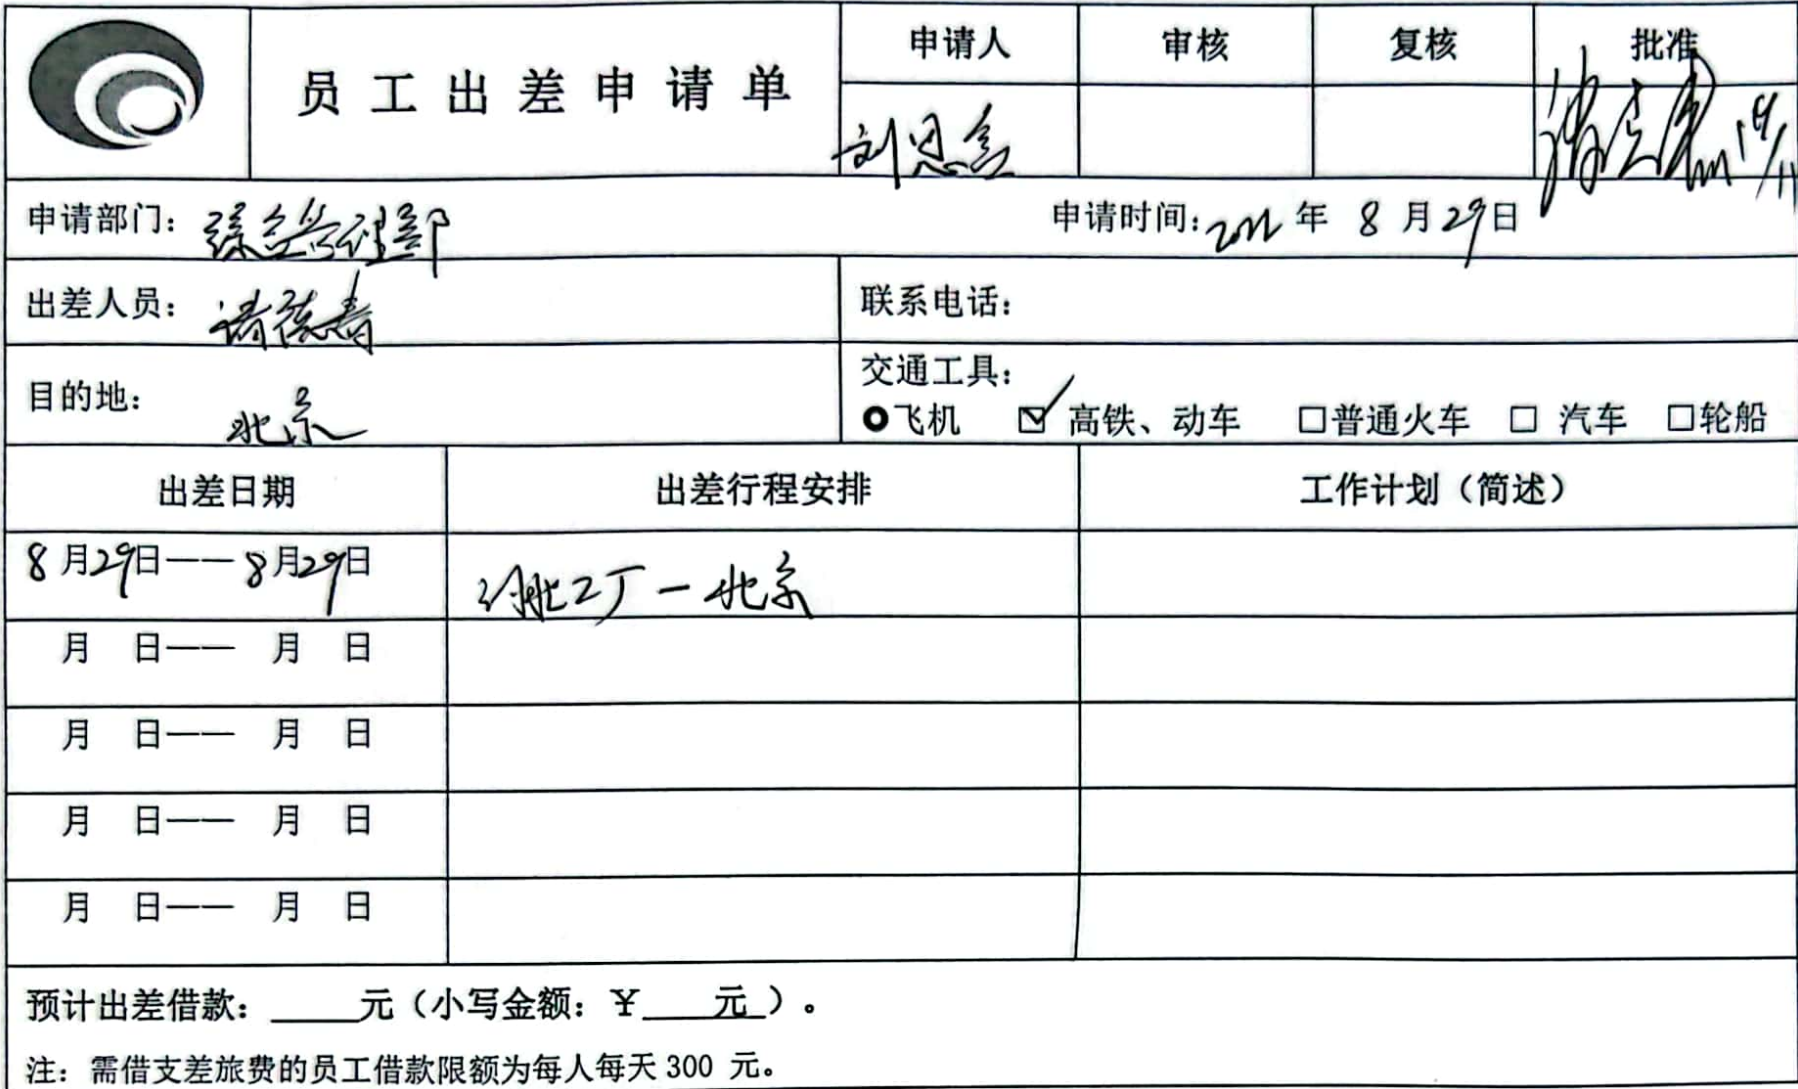 员工出差申请单
申请人 审核 复核 批准
申请部门：综合管理部 申请时间：2022年 8月29日
出差人员： 联系电话：
目的地：北京
交通工具：
飞机 ☑高铁、动车 □普通火车 □ 汽车 □轮船
出差日期 出差行程安排 工作计划（简述）
8月29日——8月29日 工厂一北京
月 日—— 月 日
月 日—— 月 日
月 日—— 月 日
月 日—— 月 日
预计出差借款：_____元（小写金额：￥____元_）。
注：需借支差旅费的员工借款限额为每人每天300 元。